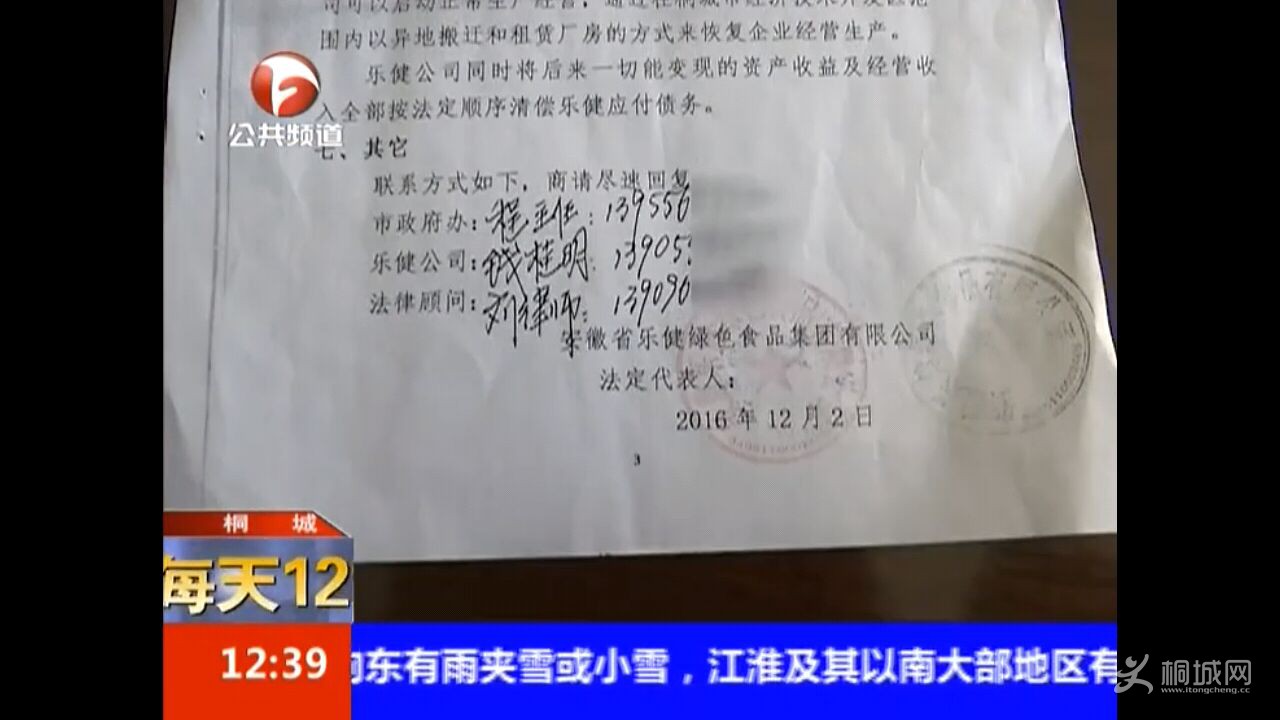 司可以启动正常生产经营，通过在桐城市经济技术开发区范
围内以异地搬迁和租赁厂房的方式来恢复企业经营生产。
乐健公司同时将后来一切能变现的资产收益及经营收
入全部按法定顺序清偿乐健应付债务。
公共频道
七、其它
联系方式如下，商请尽速回复
市政府办：程主任：139556
乐健公司：钱桂明：13905
法律顾问：刘律师：139096
安徽省乐健绿色食品集团有限公司
法定代表人：
2016 年 12 月 2 日
3
桐 城
每天12
12:39
向东有雨夹雪或小雪，江淮及其以南大部地区有
桐城网
www.itongcheng.cc